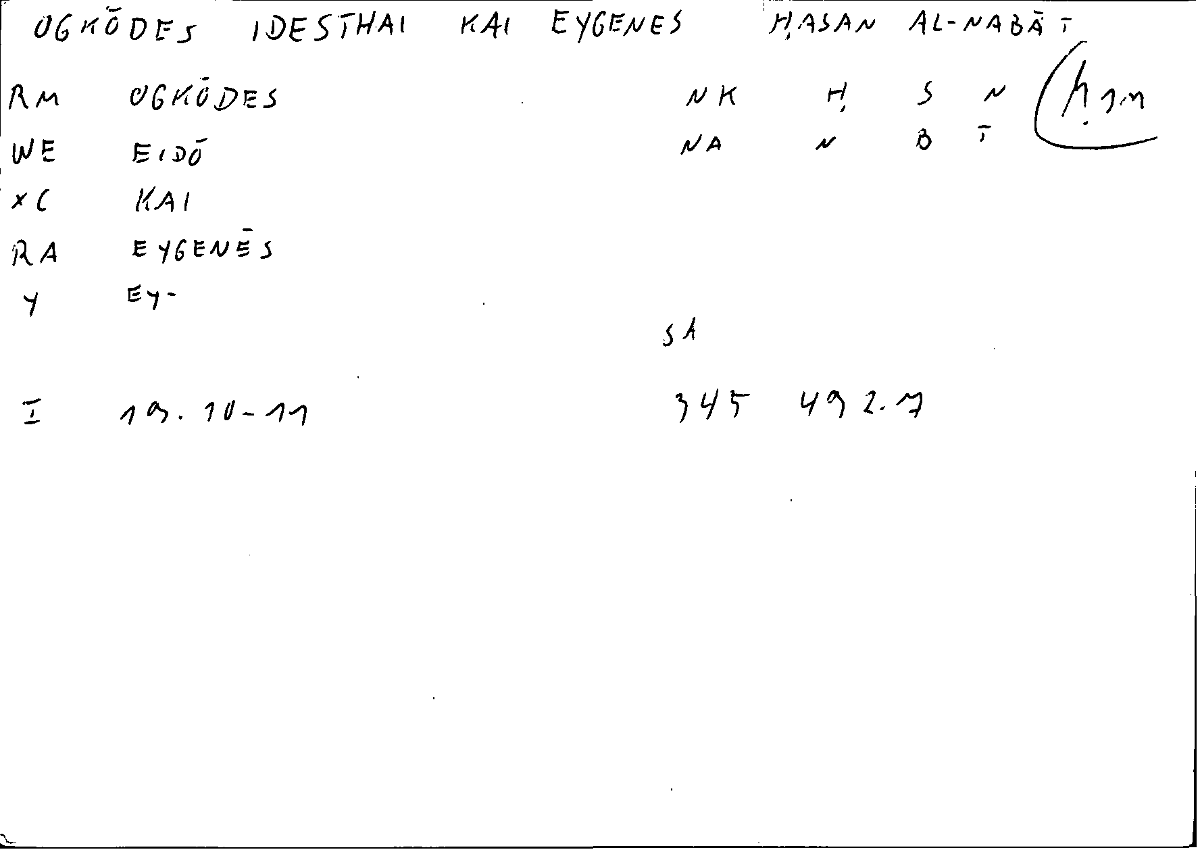 OGKŌDES IDESTHAI KAI EYGENES ḤASAN AL-NABĀT
RM OGKŌDES NK Ḥ S N ḥsn
WE EIDŌ NA N B T
XC KAI
RA EYGENĒS
Y EY-
SA
I 19.10-11 345 492.7